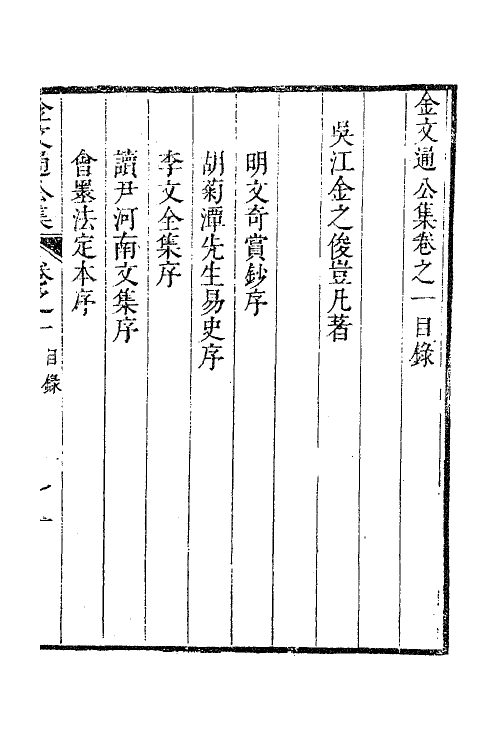 金文通公集卷之一目錄
吳江金之俊豈凡著
明文奇賞鈔序
胡菊潭先生易史序
李文全集序
讀尹河南文集序
會墨法定本序
金文通公集 卷之一 目錄